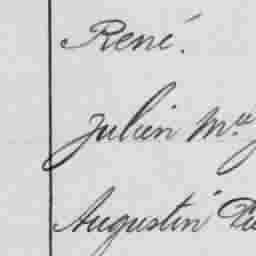 René.
Julien Mie
Augustin